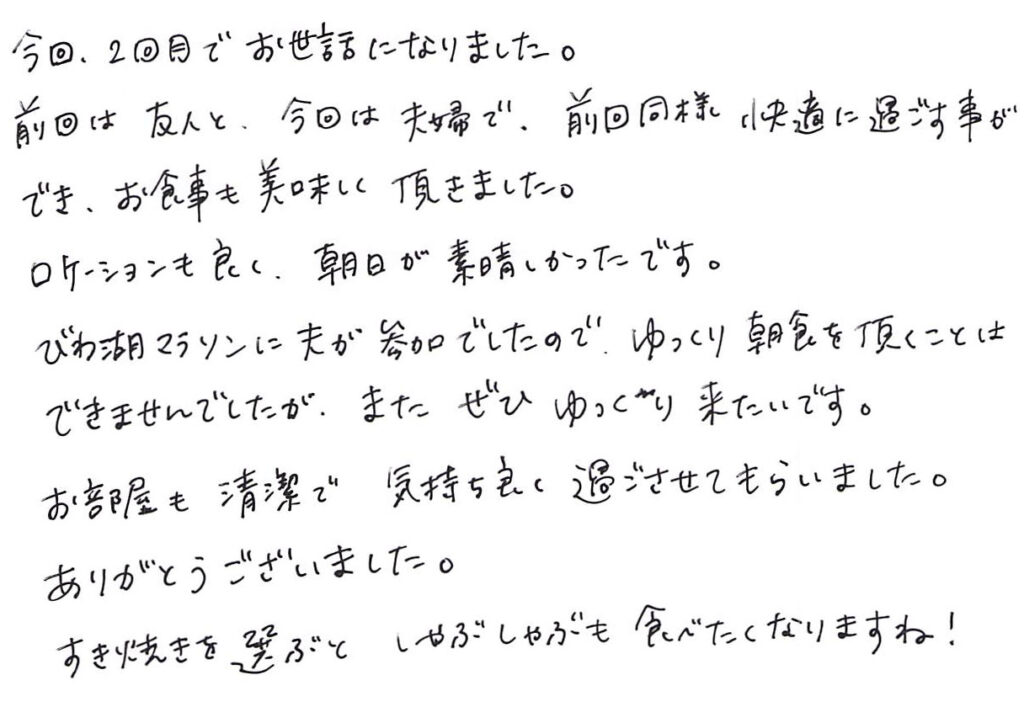 今回、2回目でお世話になりました。
前回は友人と、今回は夫婦で、前回同様快適に過ごす事が
でき、お食事も美味しく頂きました。
ロケーションも良く、朝日が素晴しかったです。
びわ湖マラソンに夫が参加でしたので、ゆっくり朝食を頂くことは
できませんでしたが、またぜひゆっくり来たいです。
お部屋も清潔で気持ち良く過ごさせてもらいました。
ありがとうございました。
すき焼きを選ぶとしゃぶしゃぶも食べたくなりますね!